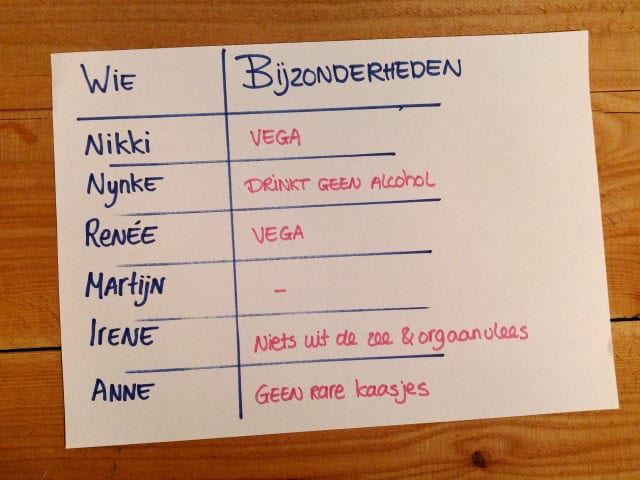 Wie Bijzonderheden
Nikki VEGA
Nynke DRINKT GEEN ALCOHOL
Renée VEGA
Martijn -
Irene Niets uit de zee & orgaanvlees
ANNE GEEN RARE kaasjes